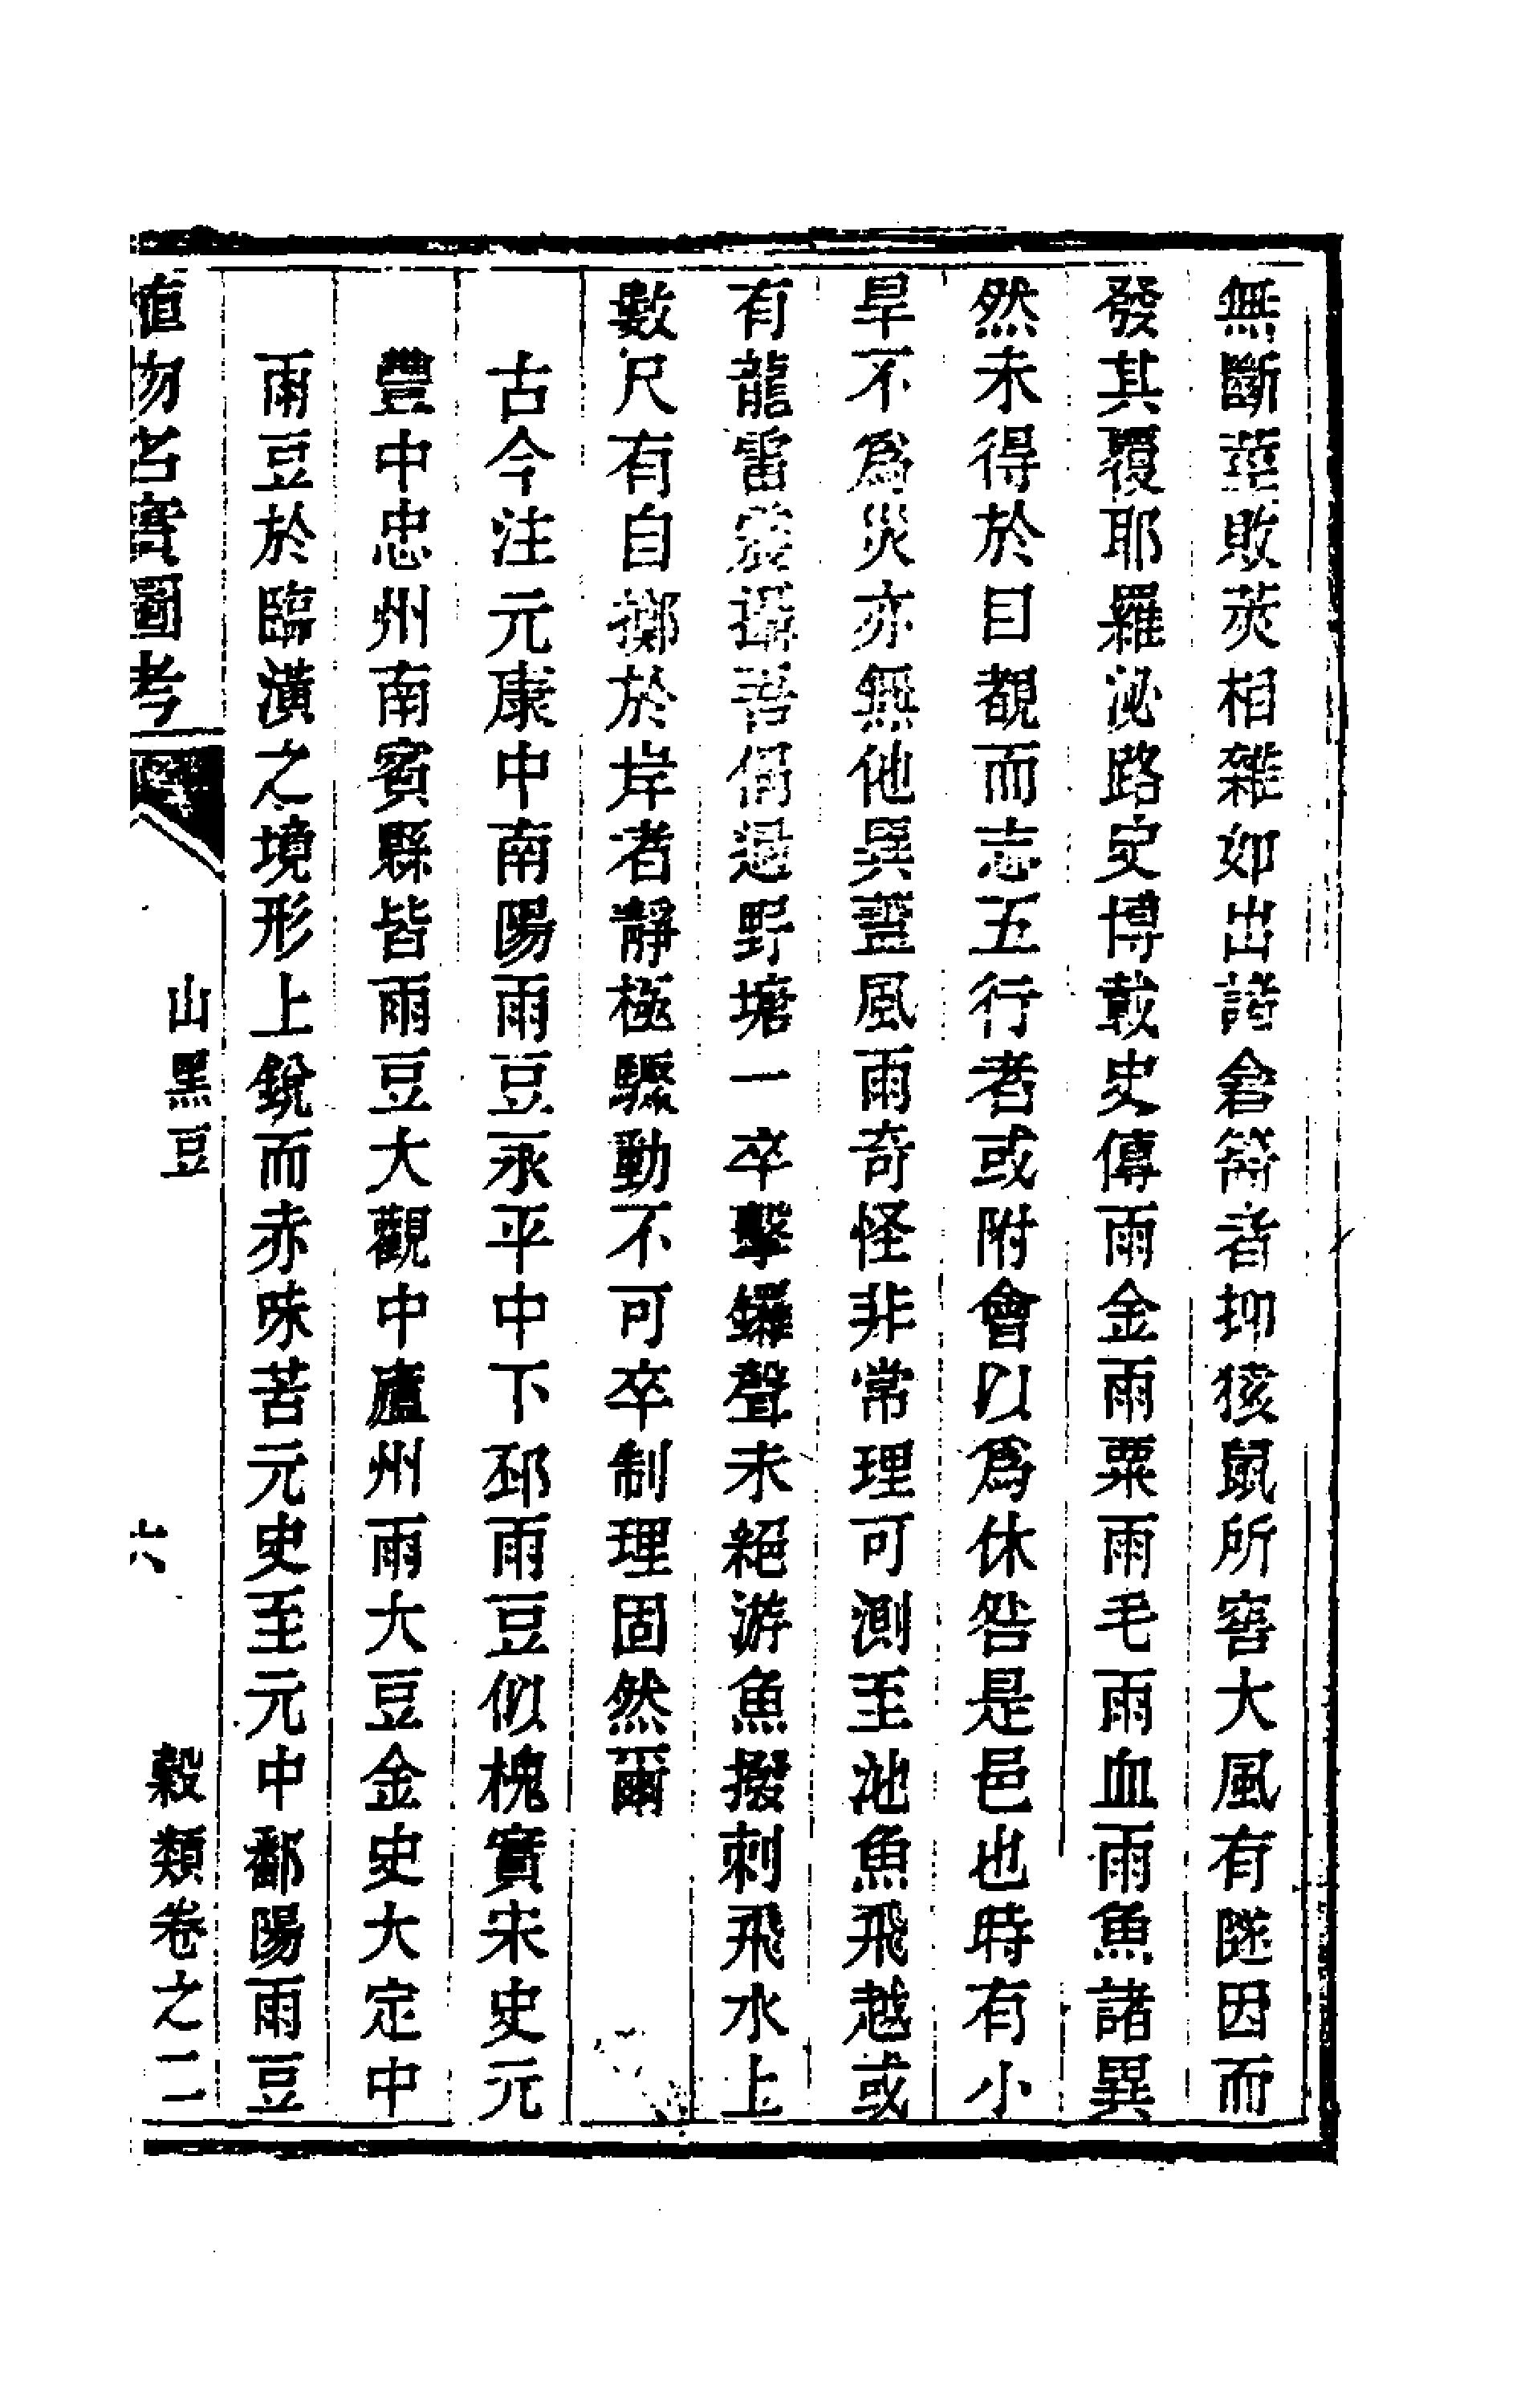 無斷莖敗莢相雜如出諸倉篅者抑㺉鼠所窖大風有隧因而
發其覆耶羅泌路史博載史傳雨金雨粟雨毛雨血雨魚諸異
然未得於目覩而志五行者或附會以爲休咎是邑也時有小
旱不爲災亦無他異蓋風雨奇怪非常理可測至池魚飛越或
有龍雷震讋吾偶過野塘一卒擊鑼聲未絕游魚撥刺飛水上
數尺有自擲於岸者靜極驟動不可卒制理固然爾
古今注元康中南陽雨豆永平中下邳雨豆似槐實宋史元
豐中忠州南賓縣皆雨豆大觀中廬州雨大豆金史大定中
雨豆於臨潢之境形上銳而赤味苦元史至元中鄱陽雨豆
植物名實圖考 山黑豆 六 穀類卷之二